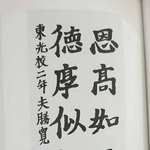 恩高如
德厚似
東光校二年 夫勝寬